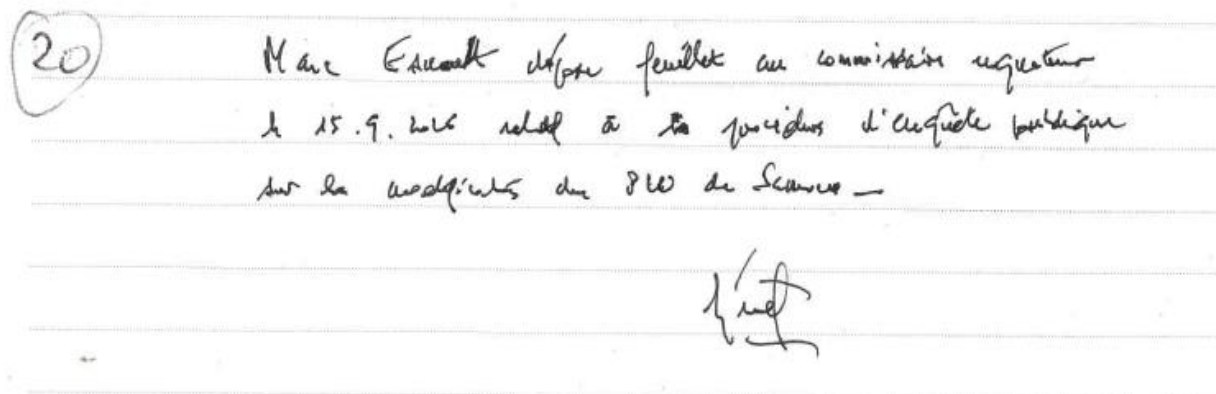 20
Marc dépose feuillet au commissaire enquêteur
le 15.9.2016 relatif à la procédure d'enquête publique
sur la modification du PLU de